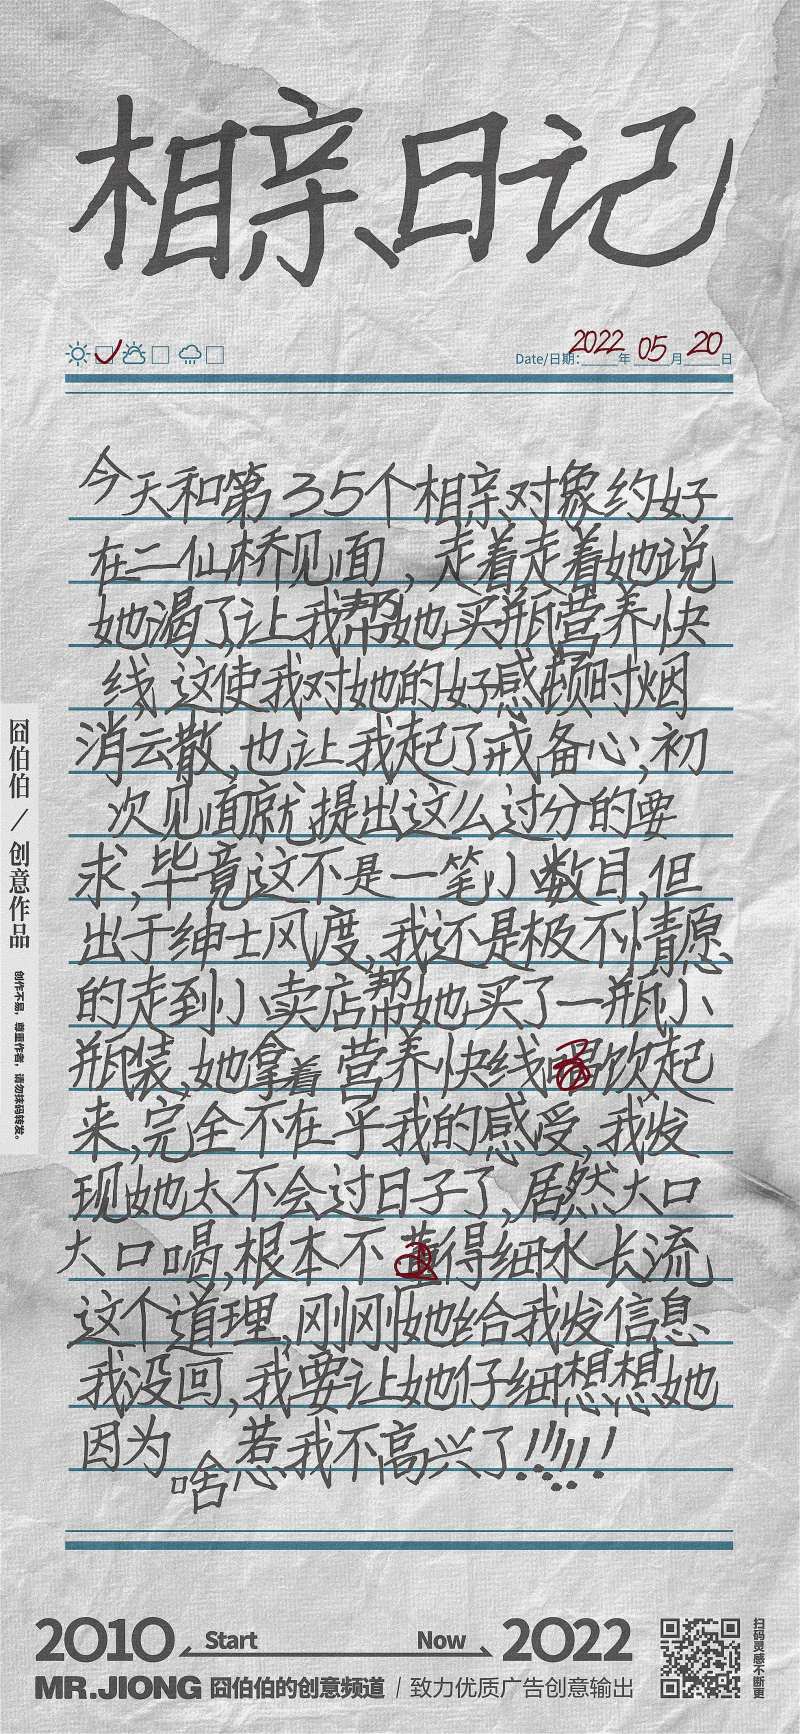 相亲日记
2022 05 20
Date/日期:____年____月____日
今天和第35个相亲对象约好
在二仙桥见面，走着走着她说
她渴了让我帮她买瓶营养快
线 这使我对她的好感顿时烟
消云散,也让我起了戒备心,初
次见面就提出这么过分的要
求,毕竟这不是一笔小数目,但
出于绅士风度,我还是极不情愿
的走到小卖店帮她买了一瓶小
瓶装,她拿着 营养快线 饮起
来,完全不在乎我的感受,我发
现她太不会过日子了,居然大口
大口喝,根本不 得细水长流
这个道理,刚刚她给我发信息
我没回,我要让她仔细想想她
因为啥惹我不高兴了!!!!!
囧伯伯／创意作品
创作不易，尊重作者，请勿抹码转发。
2010 Start Now 2022
MR.JIONG 囧伯伯的创意频道 / 致力优质广告创意输出
扫码灵感不断更